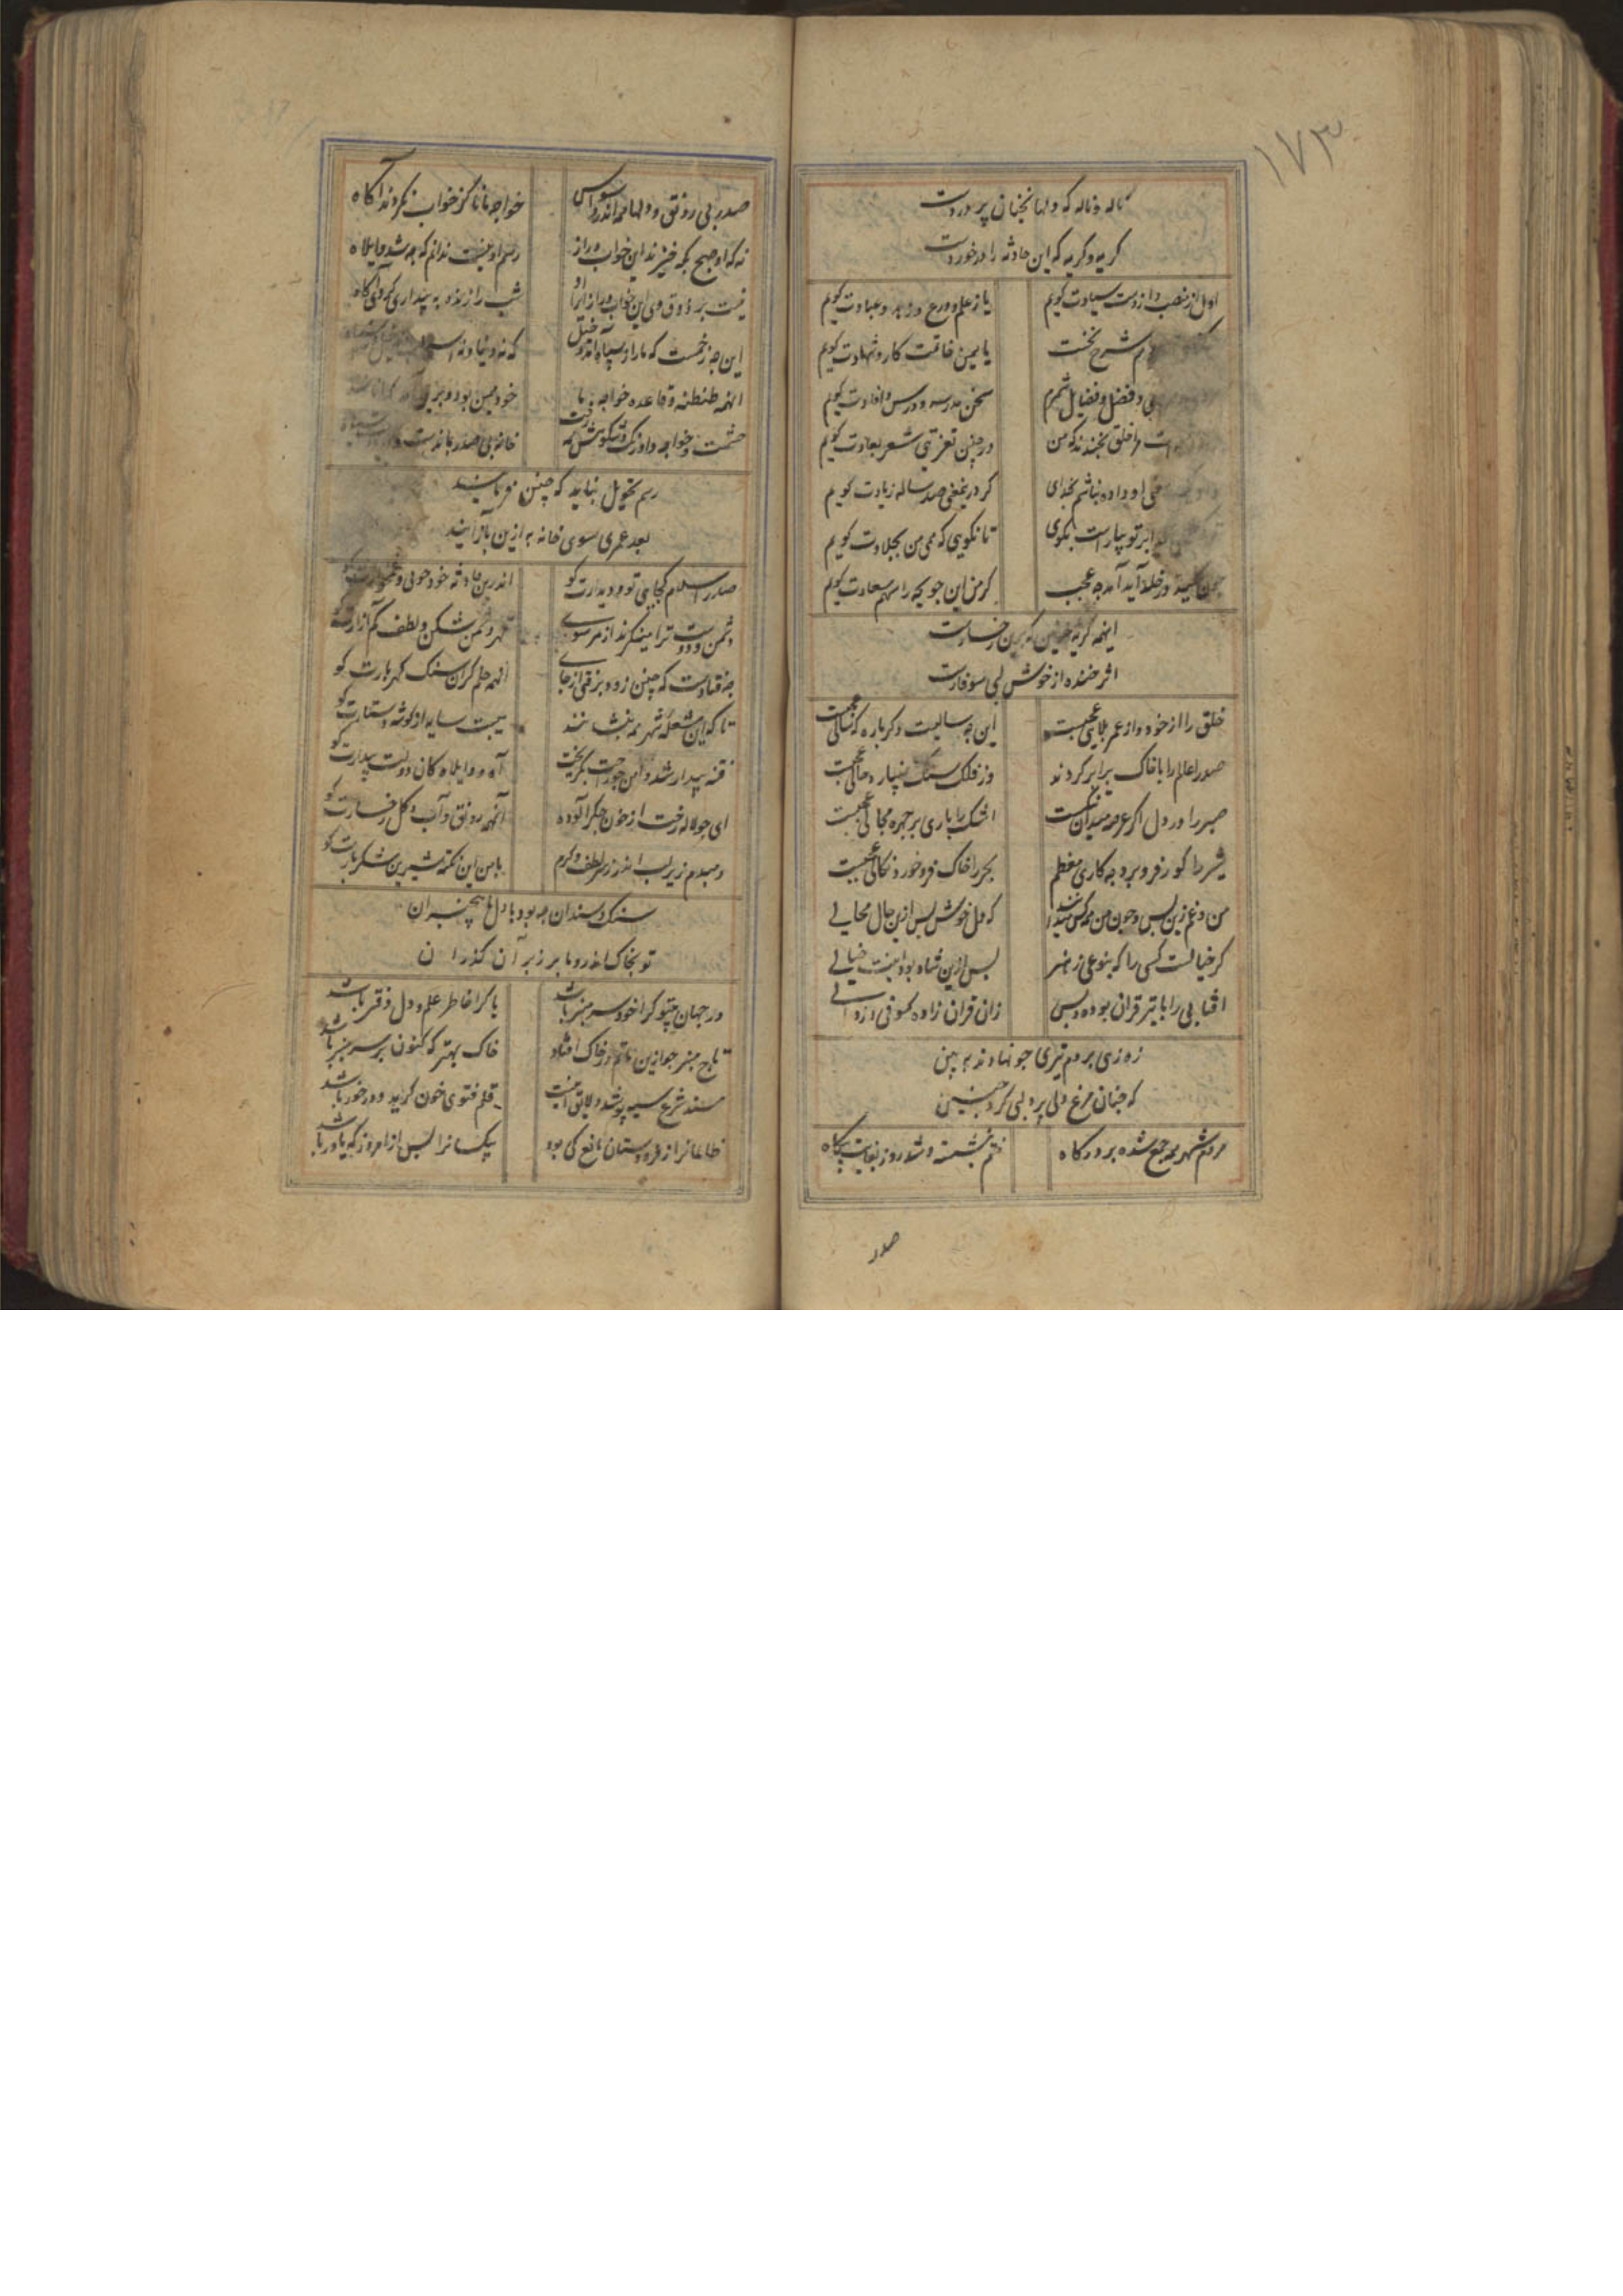 ۱۷۳
ناله و ناله که دلها بخنان پر دردست
کریه و کریه که این حادثه را درخوردست
اول از منصب و از دست سیادت کویم یا ز علم و ورع و زهد و عبادت کویم
شرح نخست یا یمین عاقبت کار و شهادت کویم
و فضل و فضایل شمرم سخن مدرسه و درس و افادت کویم
خلق بخندند که من در چنین تعزیتی شعر بعادت کویم
او داده نباشم بخدای کر درین غم صد ساله زیادت کویم
بکوی تا نکویی که همی من بجلادت کویم
آید آمده عجب کر من این جو یحه را سهم سعادت کویم
اینهمه کریه خونین
اثر خنده از خوش لبی سوفارست
خلق را از خود و از عمر ملالی عجبست این چه سالیست دکرباره که سالی عجبست
صدر اعلم را با خاک برابر کردند وز فلک سنک بسیار و حالی عجبست
صبر را در دل اکر عرصه میدان تنکست اشک را باری بر چهره مجالی عجبست
شیر را کور فرو برد چه کاری معظم بحر را خاک فرو خورد نکالی عجبست
من و غم زین پس و چون من همه کس میدانند که دل خوش پس ازین حال محالی
کر خیالست کسی را که بنوعی ز هنر پس ازین شاه بود اینت خیالی
افتابی را با تیر قران بود و پس زان قران زاده کسوفی و زوالی
زه زهی بر دم تیری جو نهادند ببین
که چنان مرغ دلی بر دلی کرد چنین
مردم شهر همه جمع شده بر درکاه ختم بنشسته و شد روز بغایت بیکاه
صدر
صدر بی رونق و دلها همه اندر وسواس خواجه مانا کز خواب نکردند آکاه
نه که او صبح بکه خیزند این خواب دراز رسم او نیست ندانم که چه شد واویلاه
نیست بر ذوق وی این خواب دراز ایرا او شب دراز بدو به بیداری کردی کاه
این چه زخمست که ما را ز سپاه اندوه
اینهمه طنطنه و قاعده خواجه ما خود همین بود و
حشمت خواجه و آورنک و شکوهش همه رفت خانه بی صدر بماندست
رسم تحویل نباید که چنین فرمایند
بعد عمری سوی خانه به ازین بازآیند
صدر اسلام کجایی تو و دیدارت کو اندرین حادثه خود خوبی و
دشمن و دوست ترا مینکرند از هر سوی قهر دشمن شکن و لطف کم آزارت کو
چه فتادست که چنین زود برفتی از جای آنهمه حلم کران سنک کهربارت کو
تا که این مشغله شهر همه بنشانند هیبت سایه از کوشه دستارت کو
فتنه بیدار شد و امن چو بخت بکریخت آه و واویلاه کان دولت بیدارت کو
ای چو لاله رخت از خون جکر آلوده آنهمه رونق و آب و کل رخسارت کو
دمبدم زیر لب اندر ز سر لطف و کرم با من این نکته شیرین شکربارت کو
سنک و سندان چه بود با دل ما بیخبران
تو بخاک اندر و ما بر زبر آن کذران
در جهان چو تو کرا خود سر منبر باشد یا کرا خاطر علم و دل دفتر باشد
تاج منبر چو ازین ماتم در خاک افتاد خاک بهتر که کنون بر سر منبر باشد
مسند شرع سیه پوشد و لایق اینست قلم فتوی خون کرید و درخور باشد
ظالمانرا ز فرودستان مانع کی بود بیکسانرا پس از امروز که یاور باشد